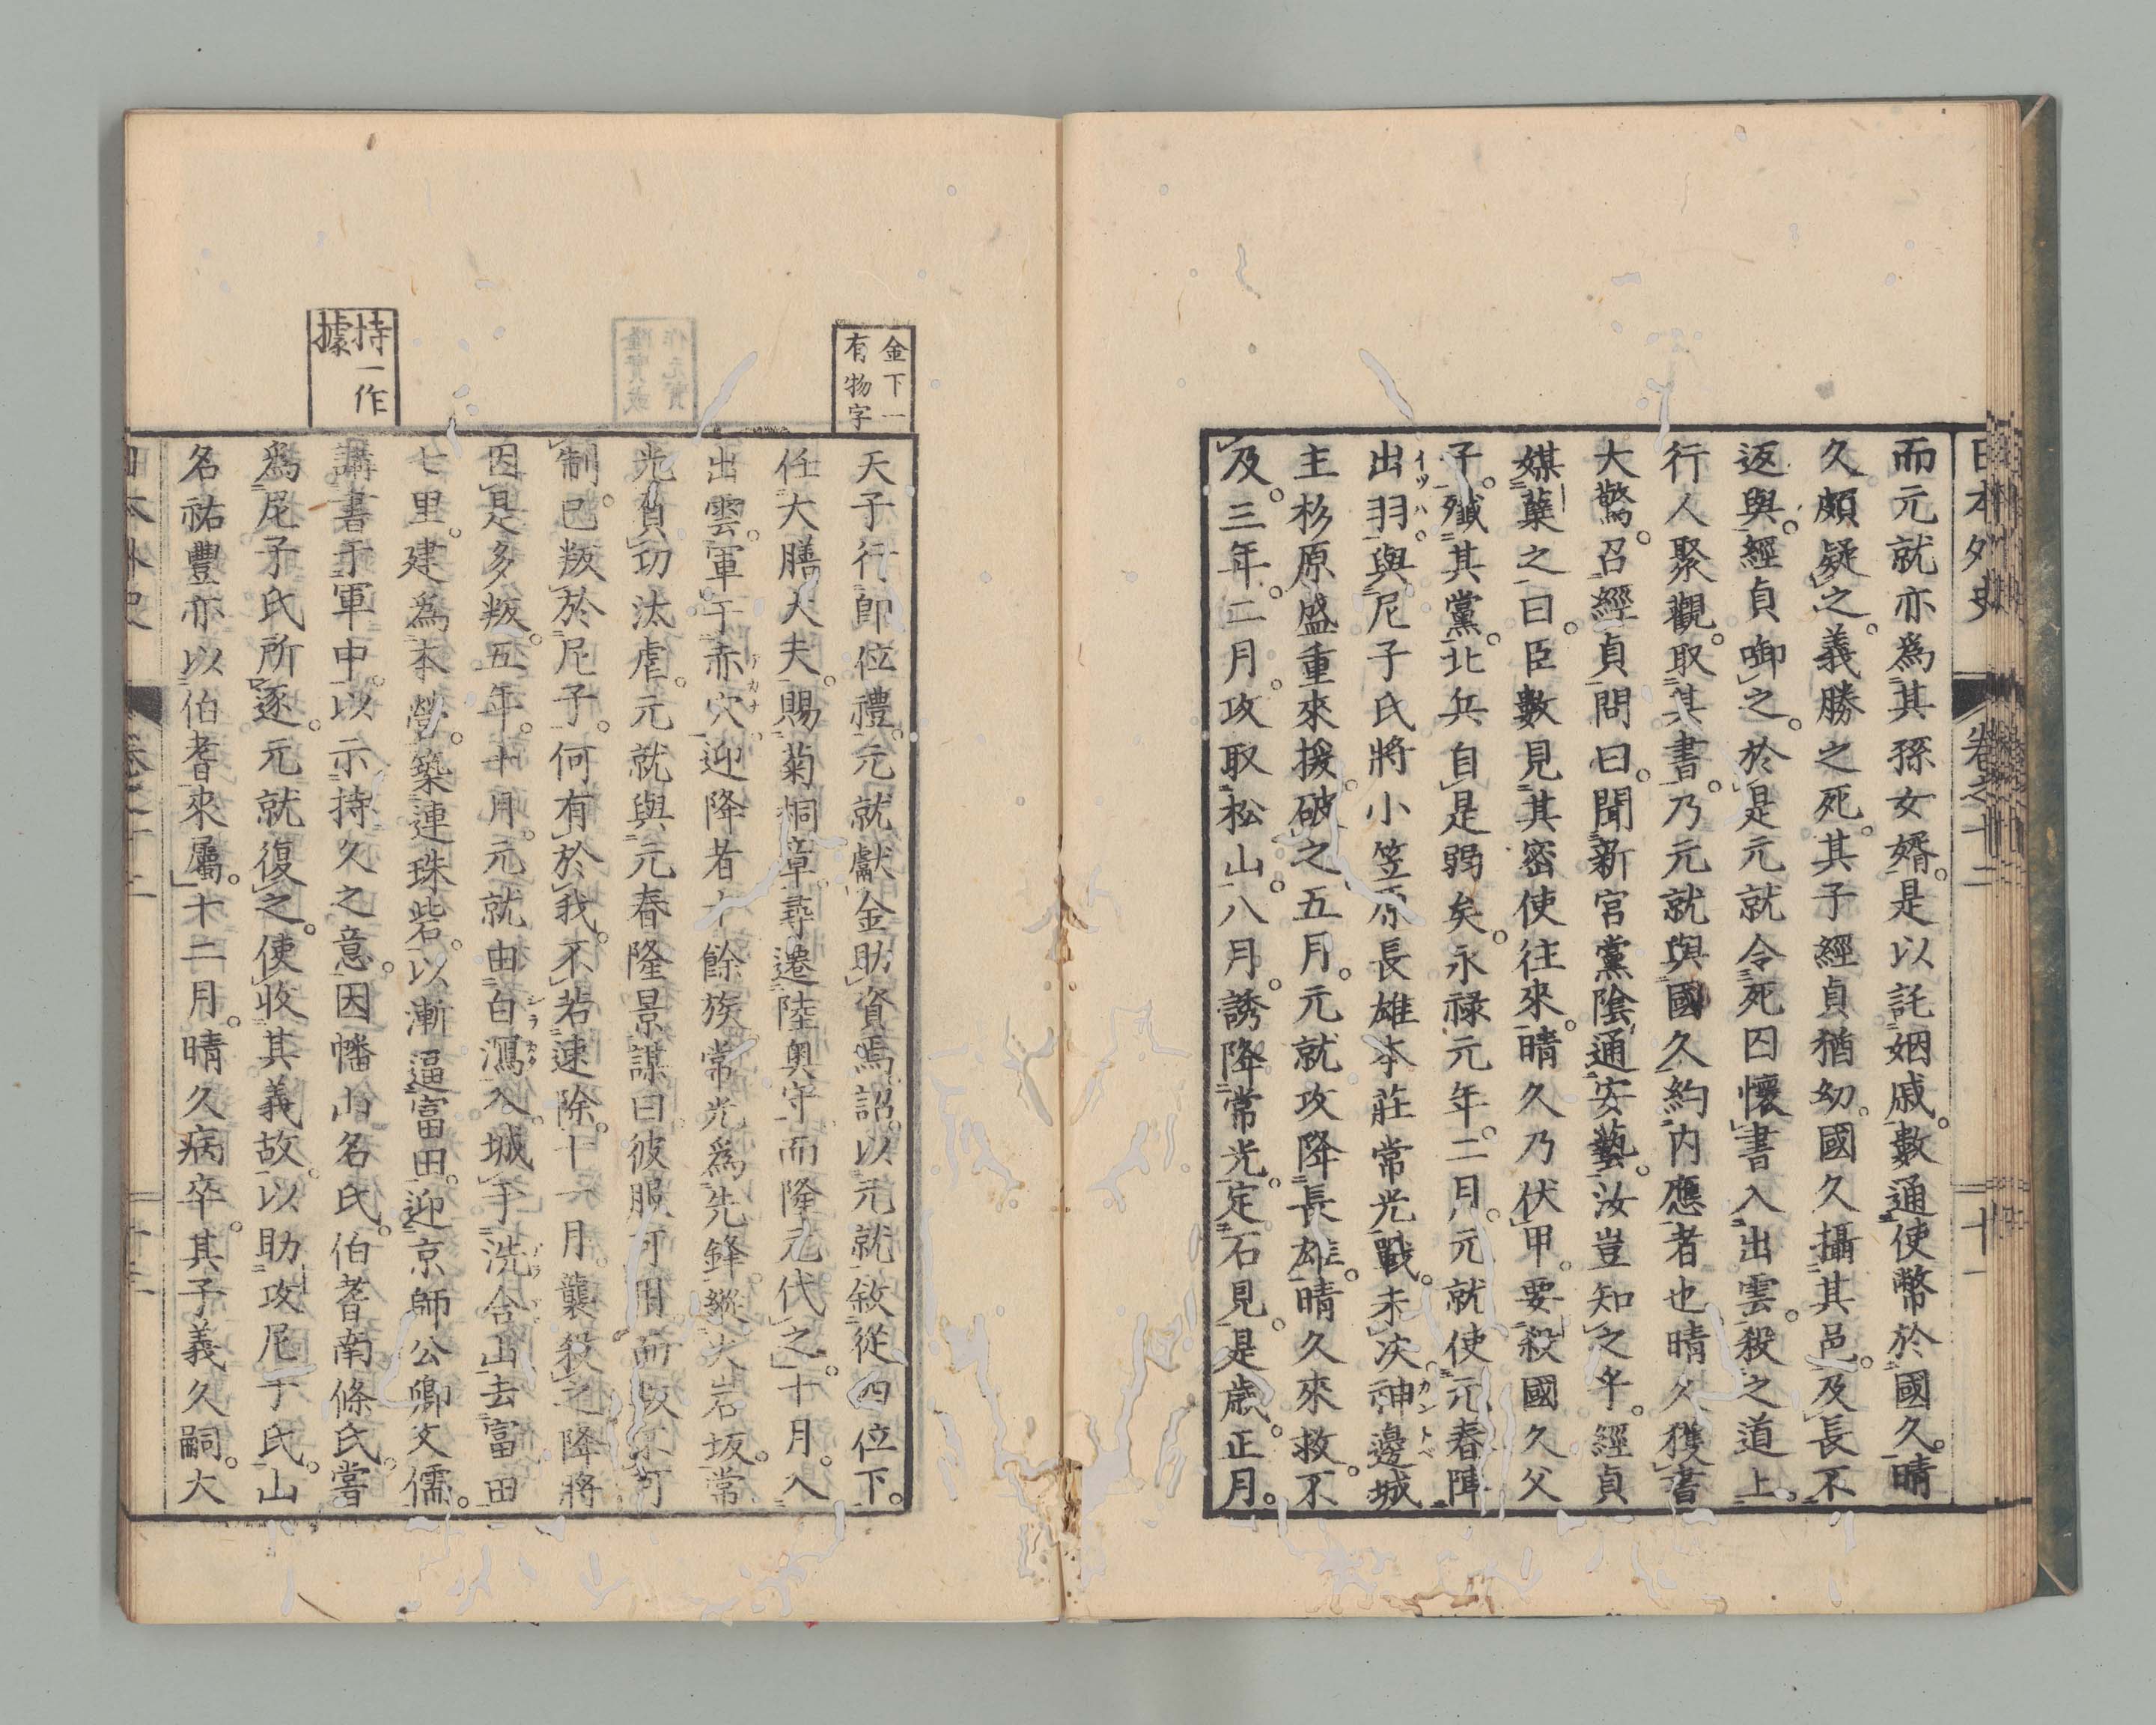 日本外史 卷之十二 十一
而元就亦爲其孫女婿。是以託姻戚。數通使幣於國久。晴
久頗疑之。義勝之死。其子經貞猶幼。國久攝其邑。及長不
返與。經貞啣之。於是元就令死囚懷書入出雲。殺之道上。
行人聚觀。取其書。乃元就與國久約内應者也。晴久獲書
大驚。召經貞問曰。聞新宮黨陰通安藝。汝豈知之乎。經貞
媒糵之曰。臣數見其密使往來。晴久乃伏甲。要殺國久父
子。殲其黨。北兵自是弱矣。永禄元年。二月。元就使元春陣
出羽。與尼子氏將小笠原長雄本莊常光戰。未决。神邊城
主杉原盛重來援。破之。五月。元就攻降長雄。晴久來救。不
及。三年。二月。攻取松山。八月。誘降常光。定石見。是歳。正月。
金下一
有物字
天子行即位禮。元就獻金助資焉。詔。以元就敘從四位下。
任大膳大夫。賜菊桐章。尋遷陸奥守。而隆元代之。十月。入
出雲。軍于赤穴。迎降者十餘族。常光爲先鋒。縱火岩坂。常
光負功汰虐。元就與元春隆景謀曰。彼服可用。而叛不可
制。已叛於尼子。何有於我。不若速除。十一月。襲殺之。降將
因是多叛。五年。十月。元就由白瀉入。城于洗合山。去富田
七里。建爲本營。築連珠砦。以漸逼富田。迎京師公卿文儒。
持一作
據
講書于軍中。以示持久之意。因幡山名氏。伯耆南條氏。嘗
爲尼子氏所逐。元就復之。使收其義故。以助攻尼子氏。山
名祐豐亦以伯耆來屬。十二月。晴久病卒。其子義久嗣。大
日本外史 卷之十二 十二